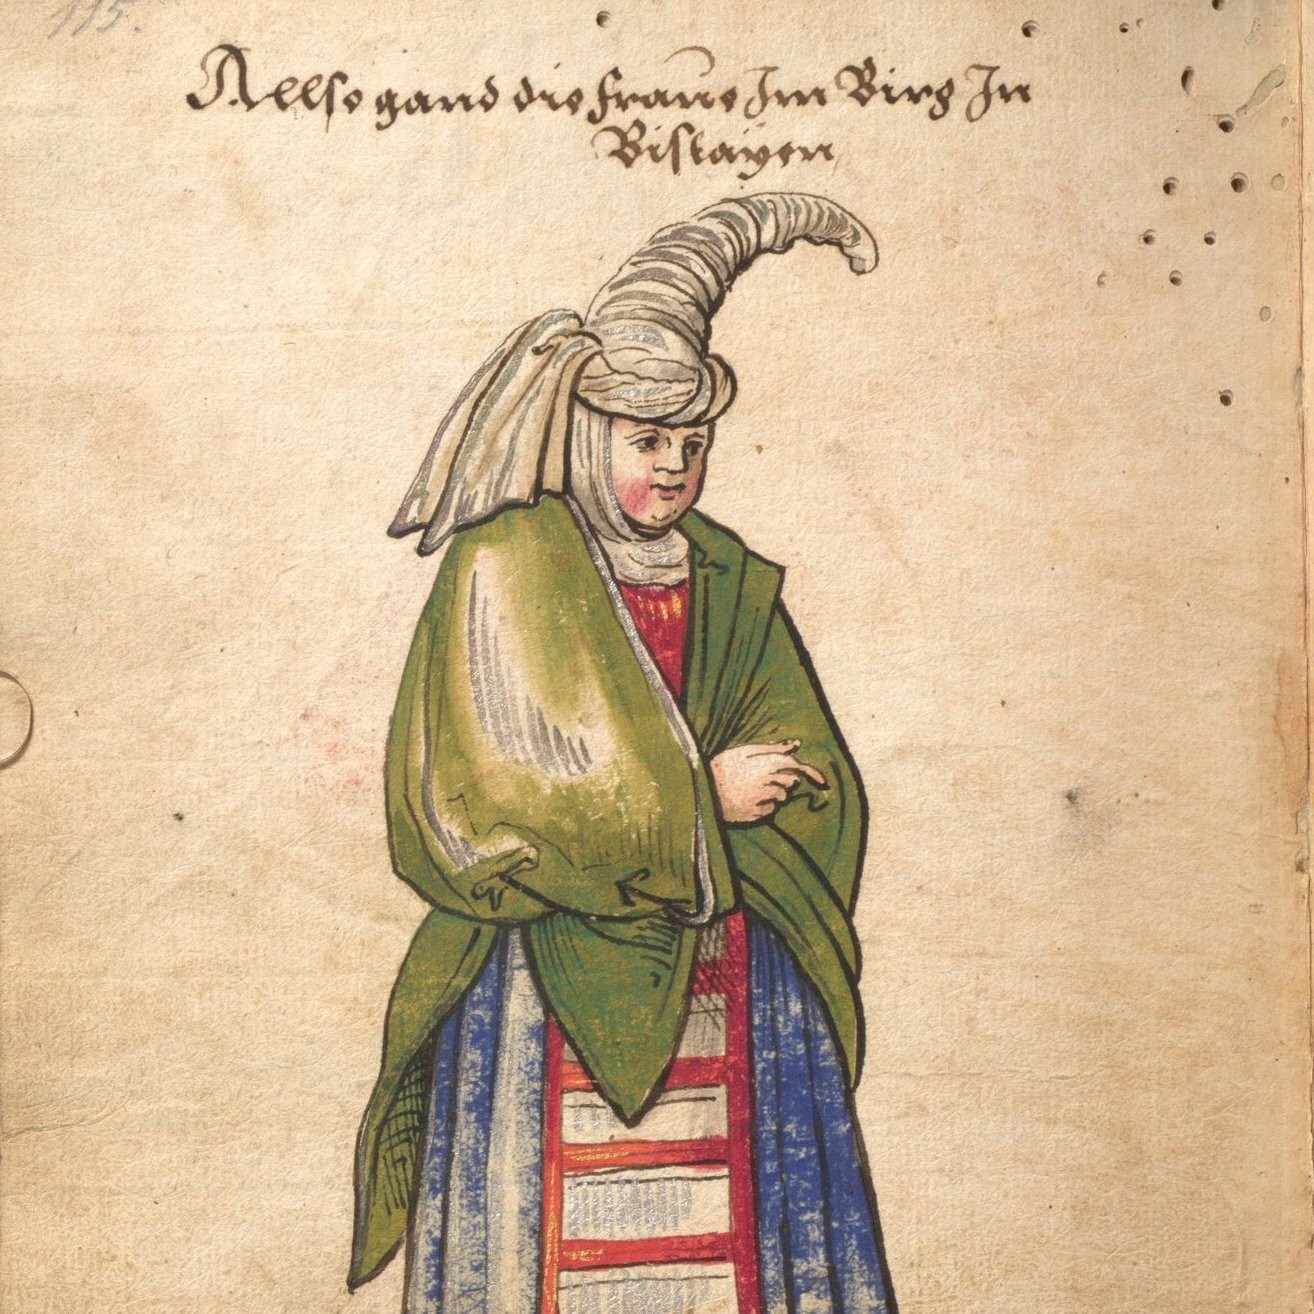 115.
Allso gand die frawe Im Birg In
Biscayen